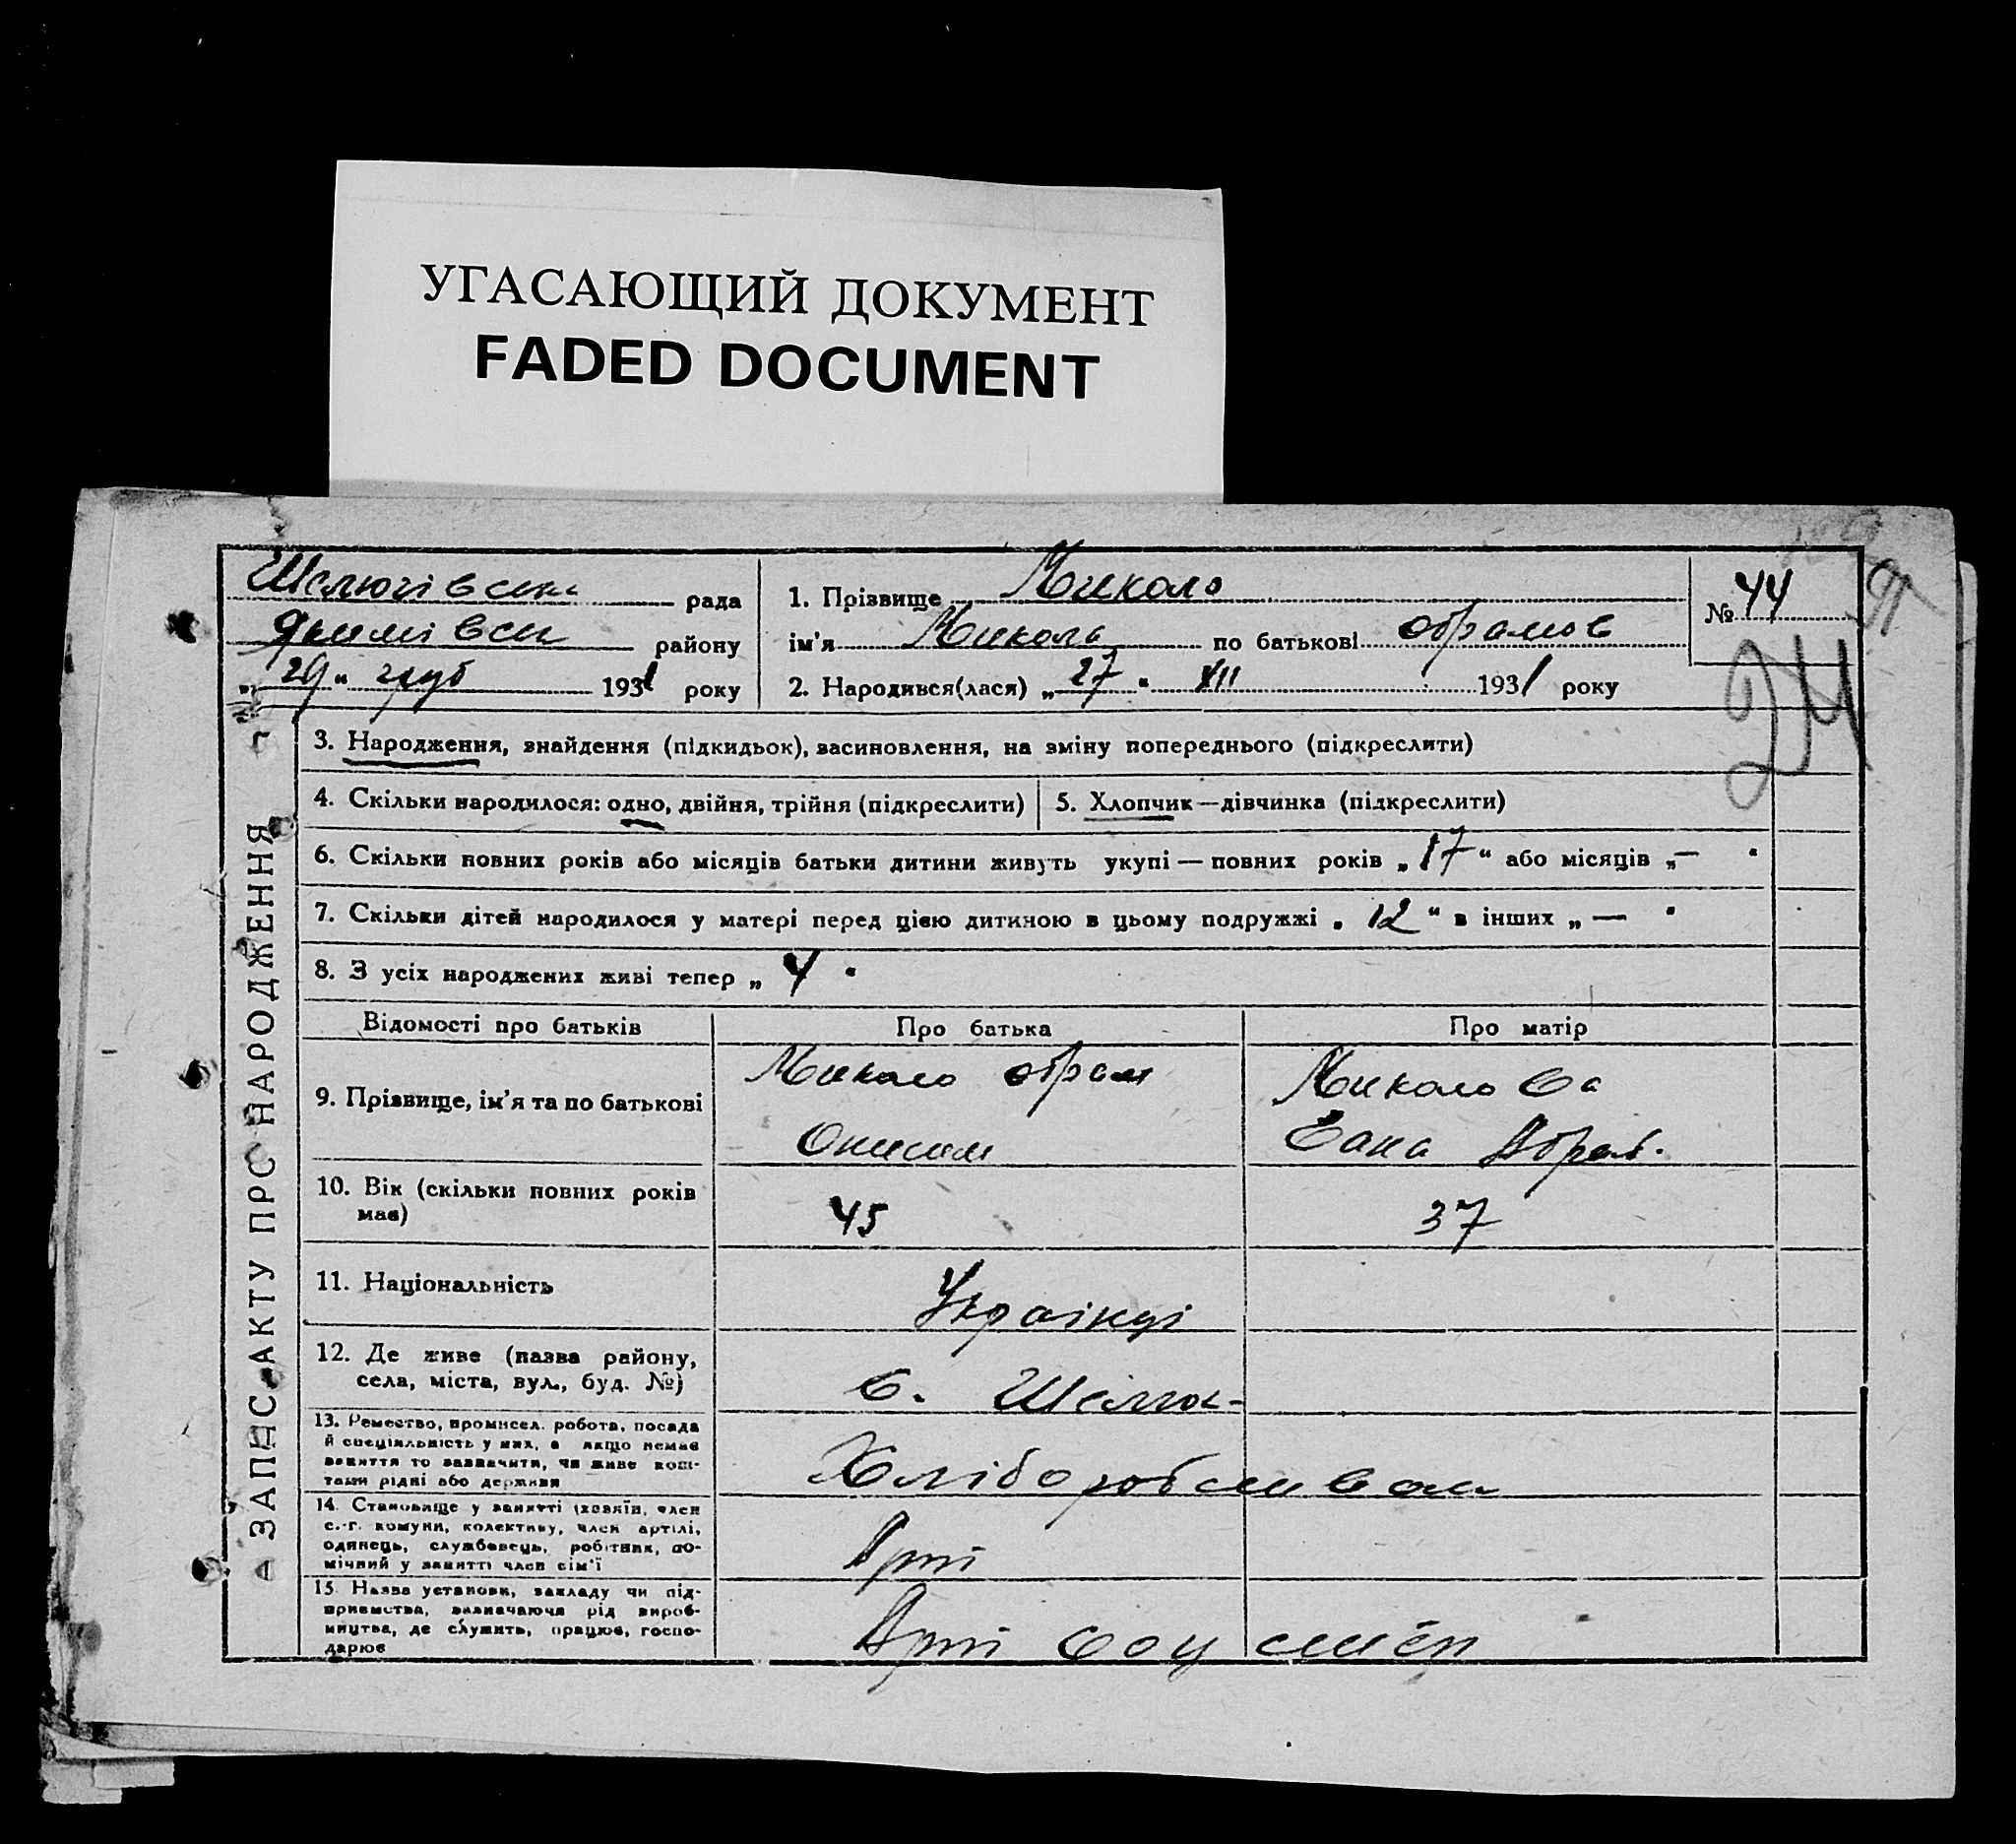 УГАСАЮЩИЙ ДОКУМЕНТ
FADED DOCUMENT
Шелюгівська рада
Якимівськ району
„29“ груд 1931 року
1. Прізвище Миколо
ім'я Микола по батькові обрамов
2. Народився(лася) „27“ XII 1931 року
№ 44
91
24
ЗАПИС АКТУ ПРО НАРОДЖЕННЯ
3. Народження, знайдення (підкидьок), васиновлення, на зміну попереднього (підкреслити)
4. Скільки народилося: одно, двійня, трійня (підкреслити)
5. Хлопчик—дівчинка (підкреслити)
6. Скільки повних років або місяців батьки дитини живуть укупі — повних років „17“ або місяців „—“
7. Скільки дітей народилося у матері перед цією дитиною в цьому подружжі „12“ в інших „—“
8. З усіх народжених живі тепер „4“
Відомості про батьків
Про батька
Про матір
9. Прізвище, ім'я та по батькові
Миколо обрам
Онисим
Миколова
10. Вік (скільки повних років
має)
45
37
11. Національність
Українці
12. Де живе (назва району,
села, міста, вул., буд. №)
с. Шелюг-
13. Ремество, промисел. робота, посада
й спеціяльність у них, а якщо немає
заняття то зазначити, чи живе кош-
тами рідні або держави
Хліборобством
14. Становище у занятті (хазяїн, член
с.-г. комуни, колективу, член артілі,
одинець, службовець, робітник, по-
мічний у занятті член сім'ї
Арті
15. Назва установи, закладу чи під-
приємства, визначаючи рід вироб-
ництва, де служить, працює, госпо-
дарює
Арті соц степ